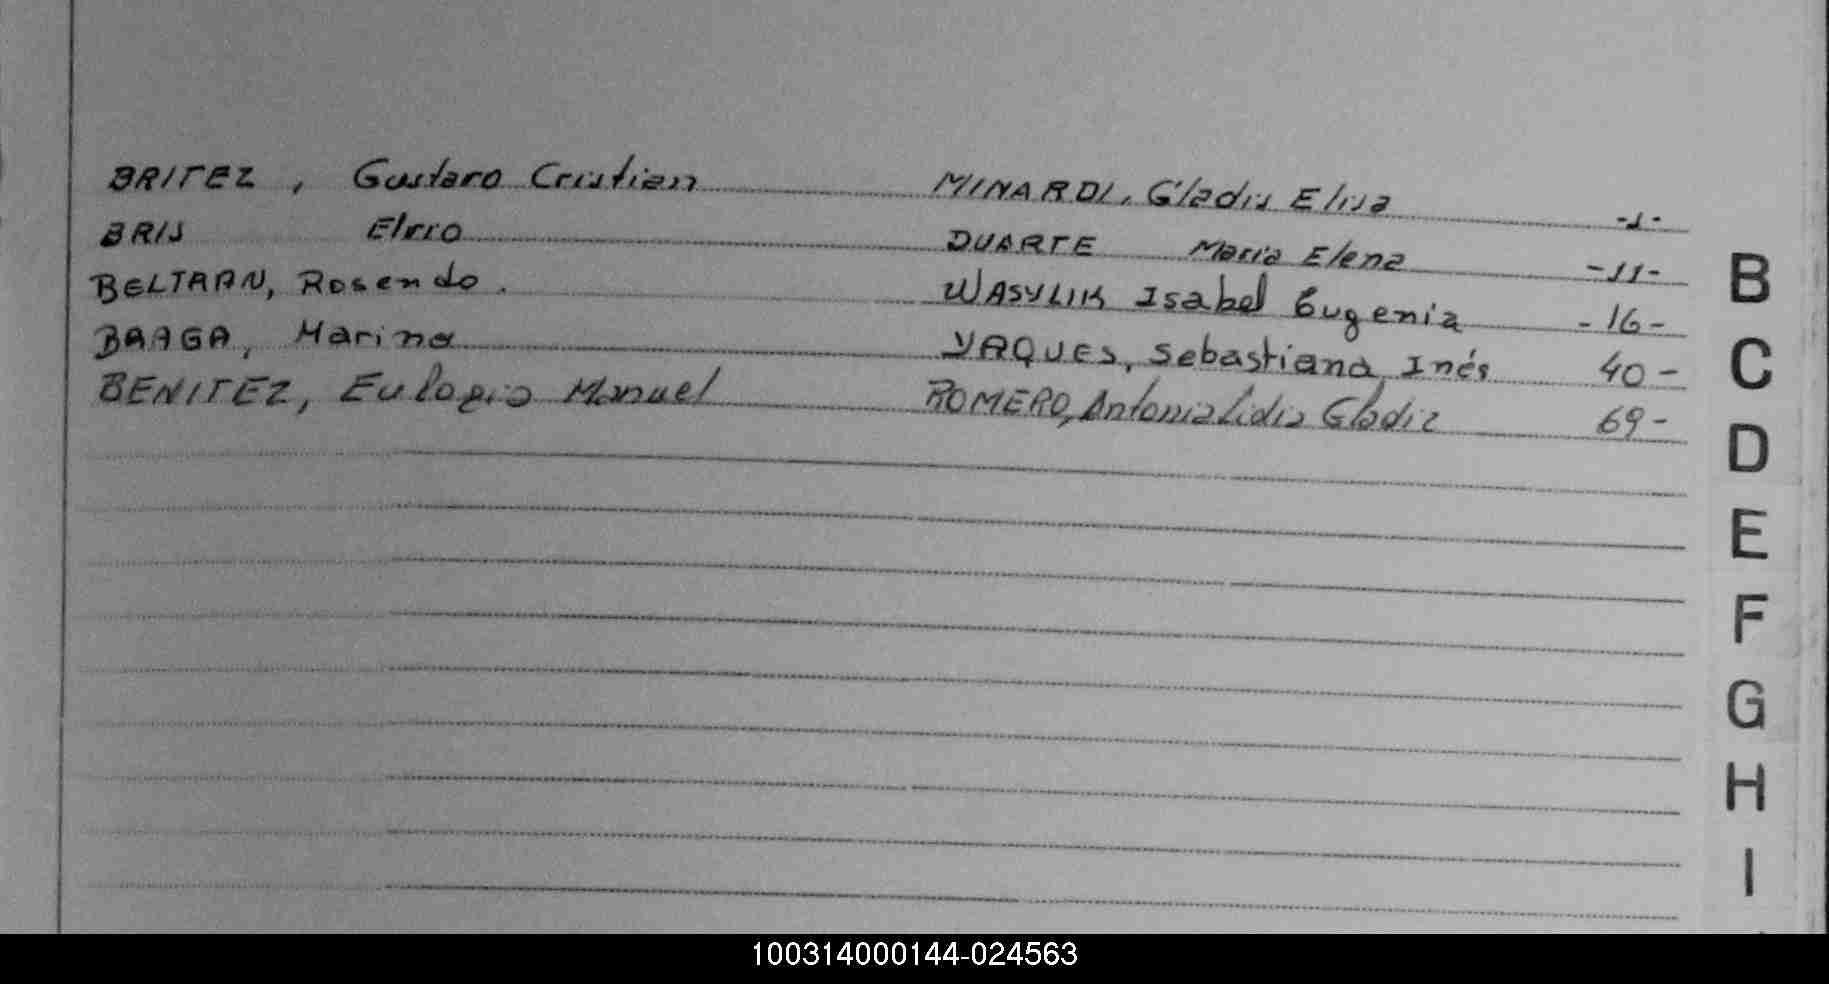 BRITEZ, Gustavo Cristian MINARDI, Gladis Elisa -1-
BRIS Elvio DUARTE Maria Elena -11-
BELTRAN, Rosendo. WASYLIK Isabel Eugenia -16-
BRAGA, Marino YAQUES, Sebastiana Inés 40-
BENITEZ, Eulogio Manuel ROMERO, Antonia Lidia Gladiz 69-
B
C
D
E
F
G
H
I
100314000144-024563